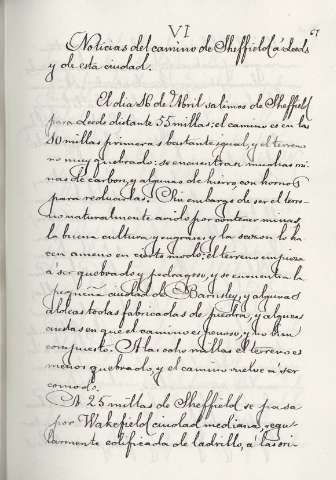 67
VI
Noticias del camino de Sheffield á Leeds
y de esta ciudad.
El dia 16 de Abril salimos de Sheffield
para Leeds distante 55 millas: el camino es en las
10 millas primeras bastante igual, y el terreno
no muy quebrado: se encuentran muchas mi-
nas de carbon, y algunas de hierro, con hornos
para reducirlas. Sin embargo de ser el terre-
no naturalmente arido por contener minas,
la buena cultura y la sazon lo ha
cen ameno en cierto modo: el terreno empieza
á ser quebrado y pedragoso, y se encuentra la
pequeña ciudad de Barnsley, y algunas
aldeas todas fabricadas de piedra, y algunas
cuestas en que el camino es penoso, y no bien
compuesto. A las ocho millas el terreno es
menos quebrado, y el camino vuelve á ser
comodo.
A 25 millas de Sheffield se pasa
por Wakefield ciudad mediana, regu-
larmente edificada de ladrillo, á las ori-